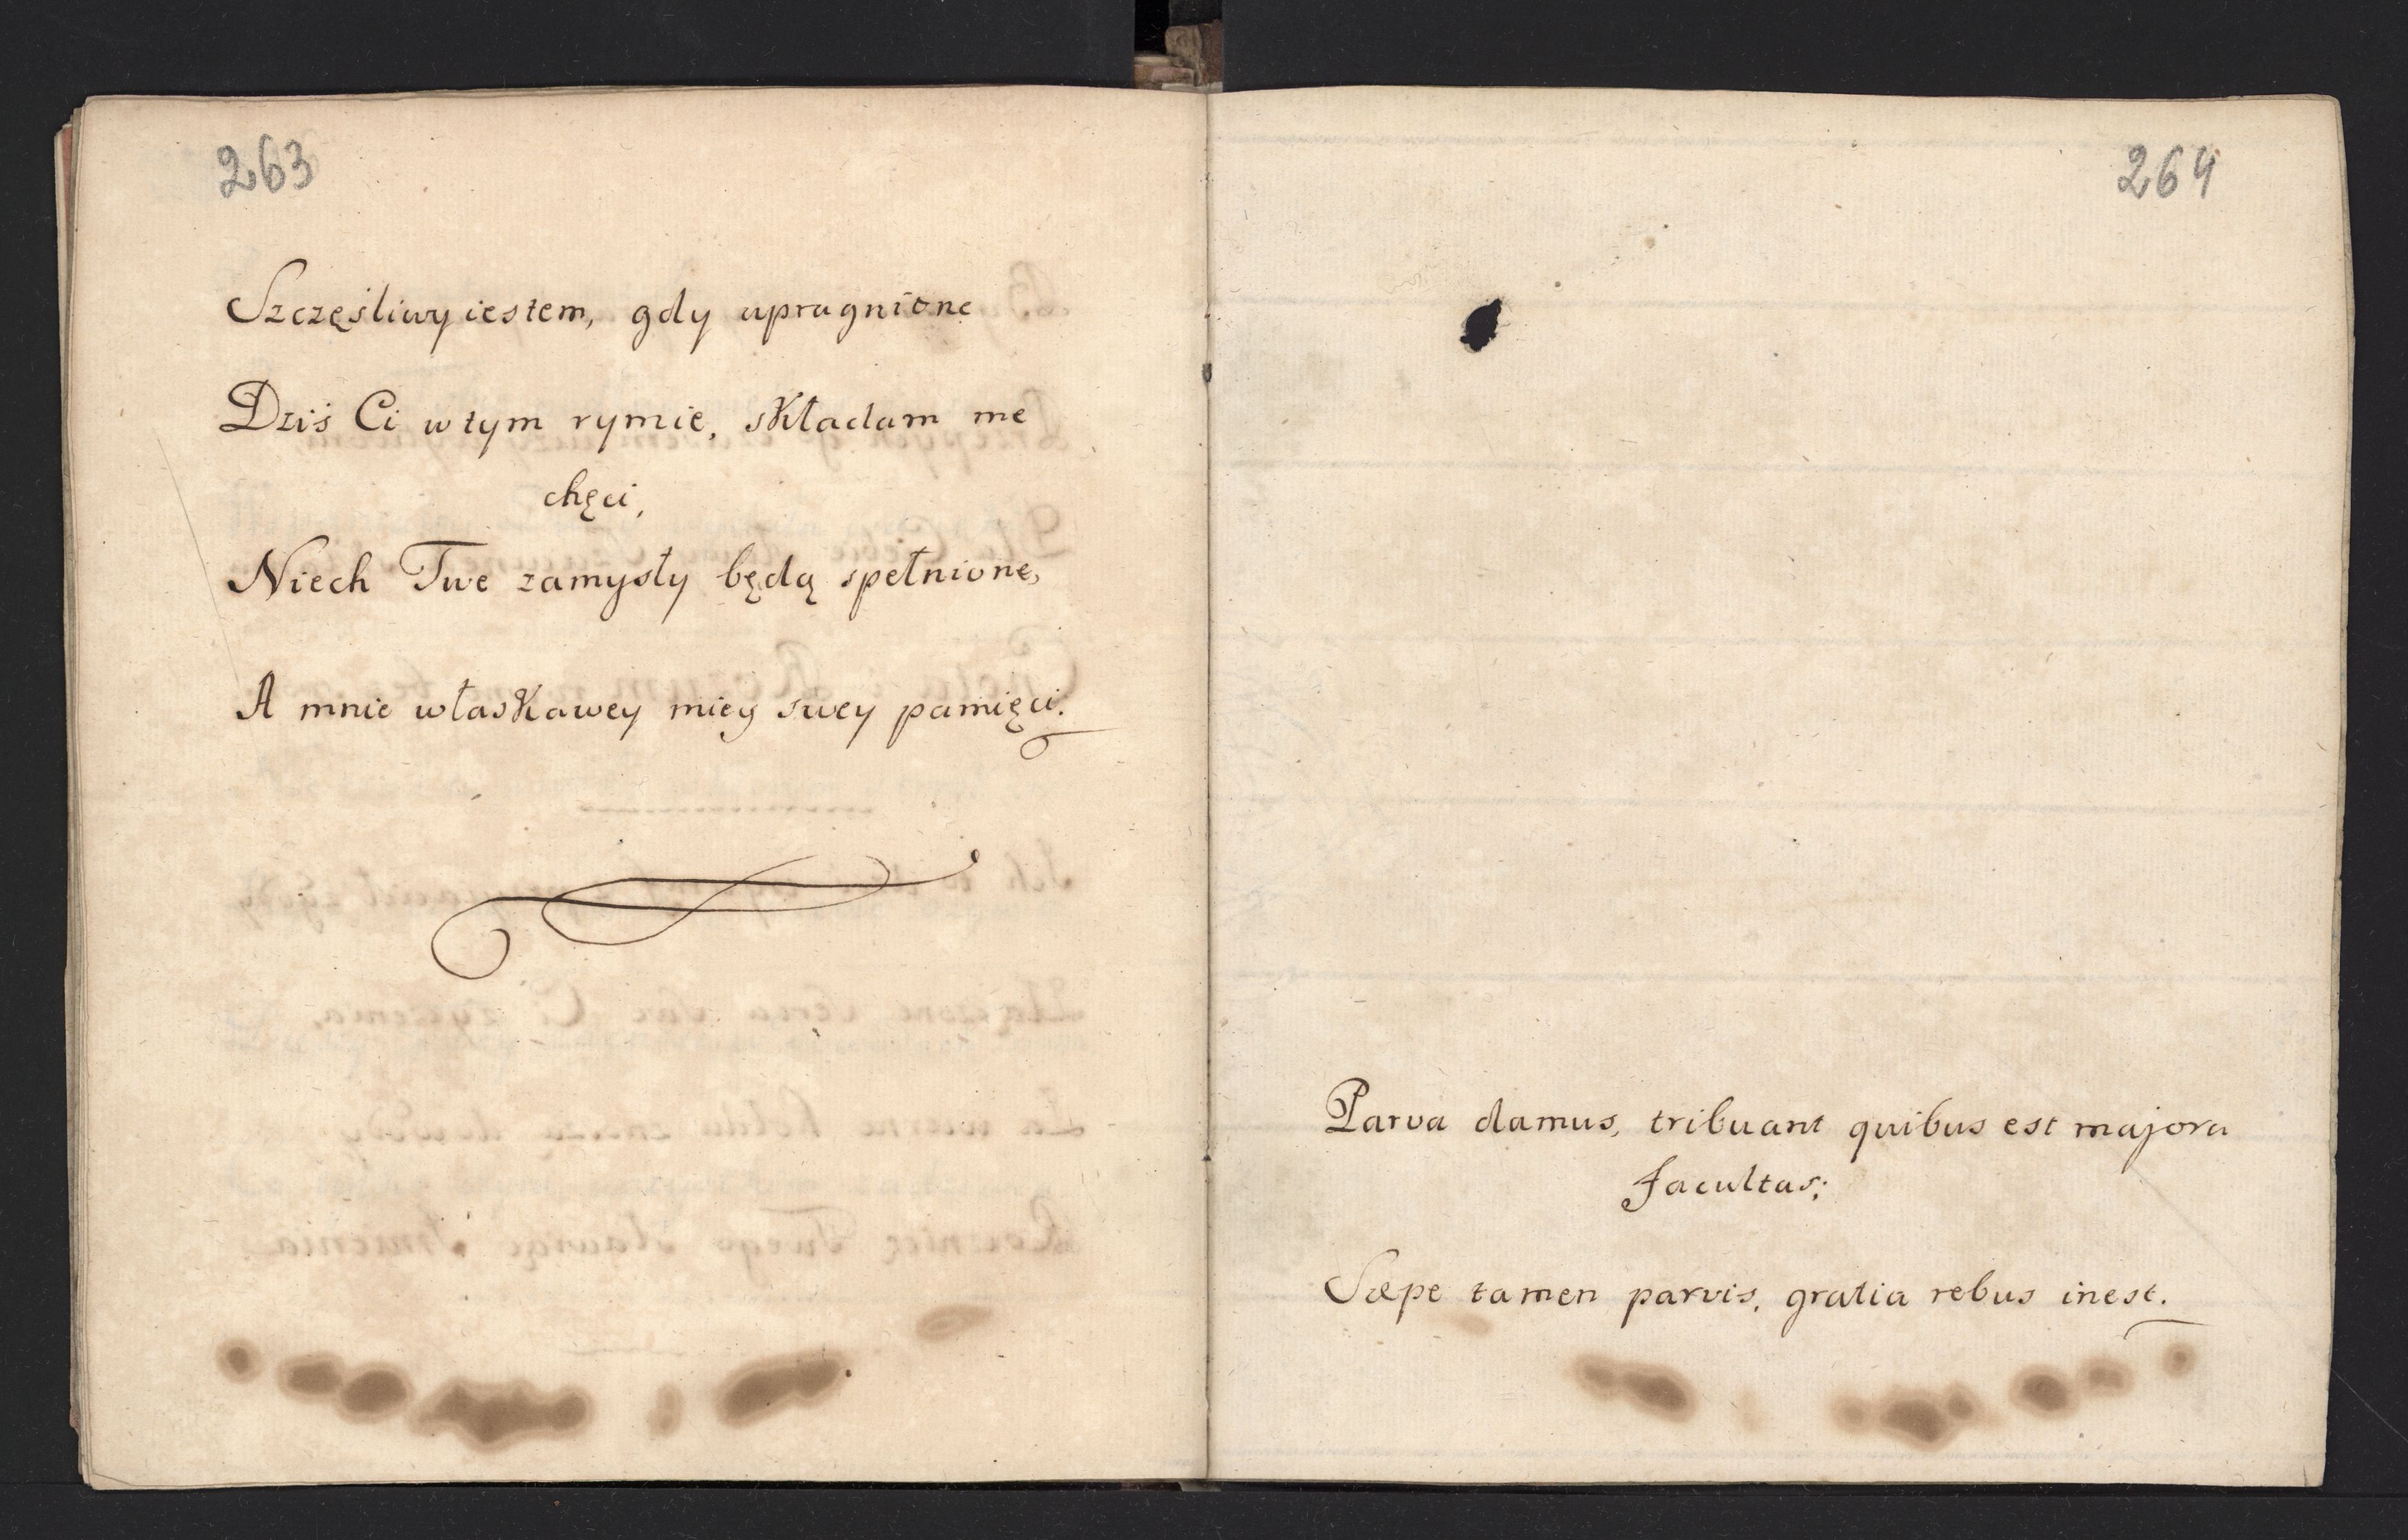 263
Szczęśliwy iestem, gdy upragnione
Dziś Ci w tym rymie, składam me
chęci,
Niech Twe zamysły będą spełnione,
A mnie w łaskawey miey swey pamięci.
264
Parva damus, tribuant quibus est majora
facultas;
Sæpe tamen parvis, gratia rebus inest.